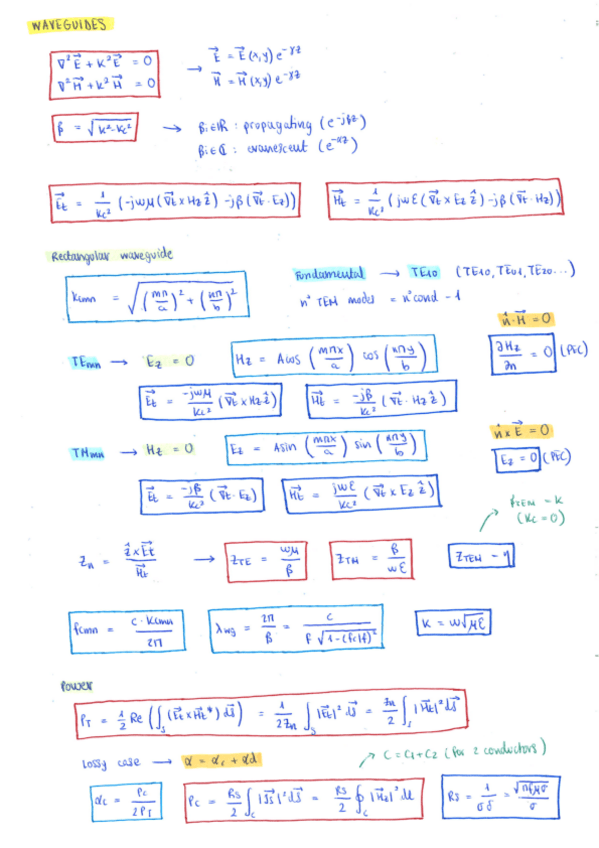 WAVEGUIDES
∇²E⃗ + K²E⃗ = 0 → E⃗ = E⃗(x,y) e^-γz
∇²H⃗ + K²H⃗ = 0 H⃗ = H⃗(x,y) e^-γz
β = √(K²-Kc²) → βi∈ℝ : propagating (e^-jβz)
βi∈ℂ : evanescent (e^-αz)
E⃗t = 1/Kc² (-jωμ(∇⃗t × Hz ẑ) - jβ(∇⃗t · Ez)) H⃗t = 1/Kc² (jωε(∇⃗t × Ez ẑ) - jβ(∇⃗t · Hz))
Rectangular waveguide
Kcmn = √((mπ/a)² + (nπ/b)²) Fundamental → TE10 (TE10, TE01, TE20...)
nº TEM modes = nº cond - 1
n̂ · H⃗ = 0
TEmn → Ez = 0 Hz = A cos (mπx/a) cos (nπy/b) ∂Hz/∂n = 0 (PEC)
E⃗t = -jωμ/Kc² (∇⃗t × Hz ẑ) H⃗t = -jβ/Kc² (∇⃗t · Hz ẑ)
n̂ × E⃗ = 0
TMmn → Hz = 0 Ez = A sin (mπx/a) sin (nπy/b) Ez = 0 (PEC)
E⃗t = -jβ/Kc² (∇⃗t · Ez) H⃗t = jωε/Kc² (∇⃗t × Ez ẑ)
βTEM = K
(Kc = 0)
Zn = ẑ × E⃗t / H⃗t → ZTE = ωμ/β ZTM = β/ωε ZTEM = η
fcmn = c · Kcmn / 2π λwg = 2π/β = c / (f √(1-(fc/f)²)) K = ω√με
Power
PT = 1/2 Re (∬s (E⃗t × H⃗t*) ds⃗) = 1/2Zn ∫s |E⃗t|² ds⃗ = Zn/2 ∫s |H⃗t|² ds⃗
Lossy case → α = αc + αd C = C1 + C2 (for 2 conductors)
αc = Pc / 2PT Pc = Rs/2 ∫c |J⃗s|² ds⃗ = Rs/2 ∮c |H⃗t|² dl Rs = 1/σδ = √πfμσ / σ